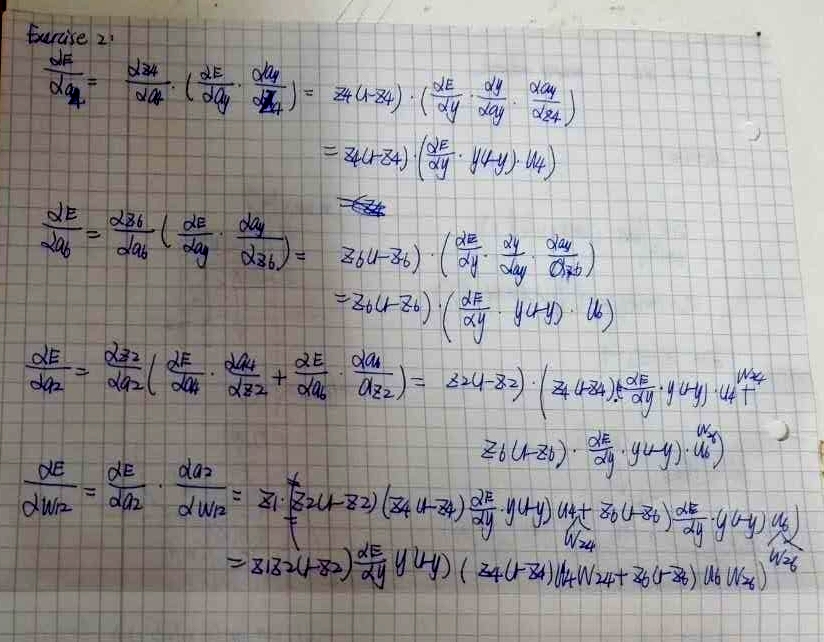 Exercise 2:
∂E/∂a4 = ∂z4/∂a4 · (∂E/∂ay · ∂ay/∂z4) = z4(1-z4) · (∂E/∂y · ∂y/∂ay · ∂ay/∂z4)
= z4(1-z4) · (∂E/∂y · y(1-y) · u4)
∂E/∂a6 = ∂z6/∂a6 (∂E/∂ay · ∂ay/∂z6) = z6(1-z6) · (∂E/∂y · ∂y/∂ay · ∂ay/∂z6)
= z6(1-z6) · (∂E/∂y · y(1-y) · u6)
∂E/∂a2 = ∂z2/∂a2 (∂E/∂a4 · ∂a4/∂z2 + ∂E/∂a6 · ∂a6/∂z2) = z2(1-z2) · (z4(1-z4) · ∂E/∂y · y(1-y) · u4 w24 +
z6(1-z6) · ∂E/∂y · y(1-y) · u6 w26)
∂E/∂w12 = ∂E/∂a2 · ∂a2/∂w12 = z1 · z2(1-z2) (z4(1-z4) ∂E/∂y · y(1-y) u4 w24 + z6(1-z6) ∂E/∂y · y(1-y) u6 w26)
= z1z2(1-z2) ∂E/∂y y(1-y) (z4(1-z4) u4 w24 + z6(1-z6) u6 w26)